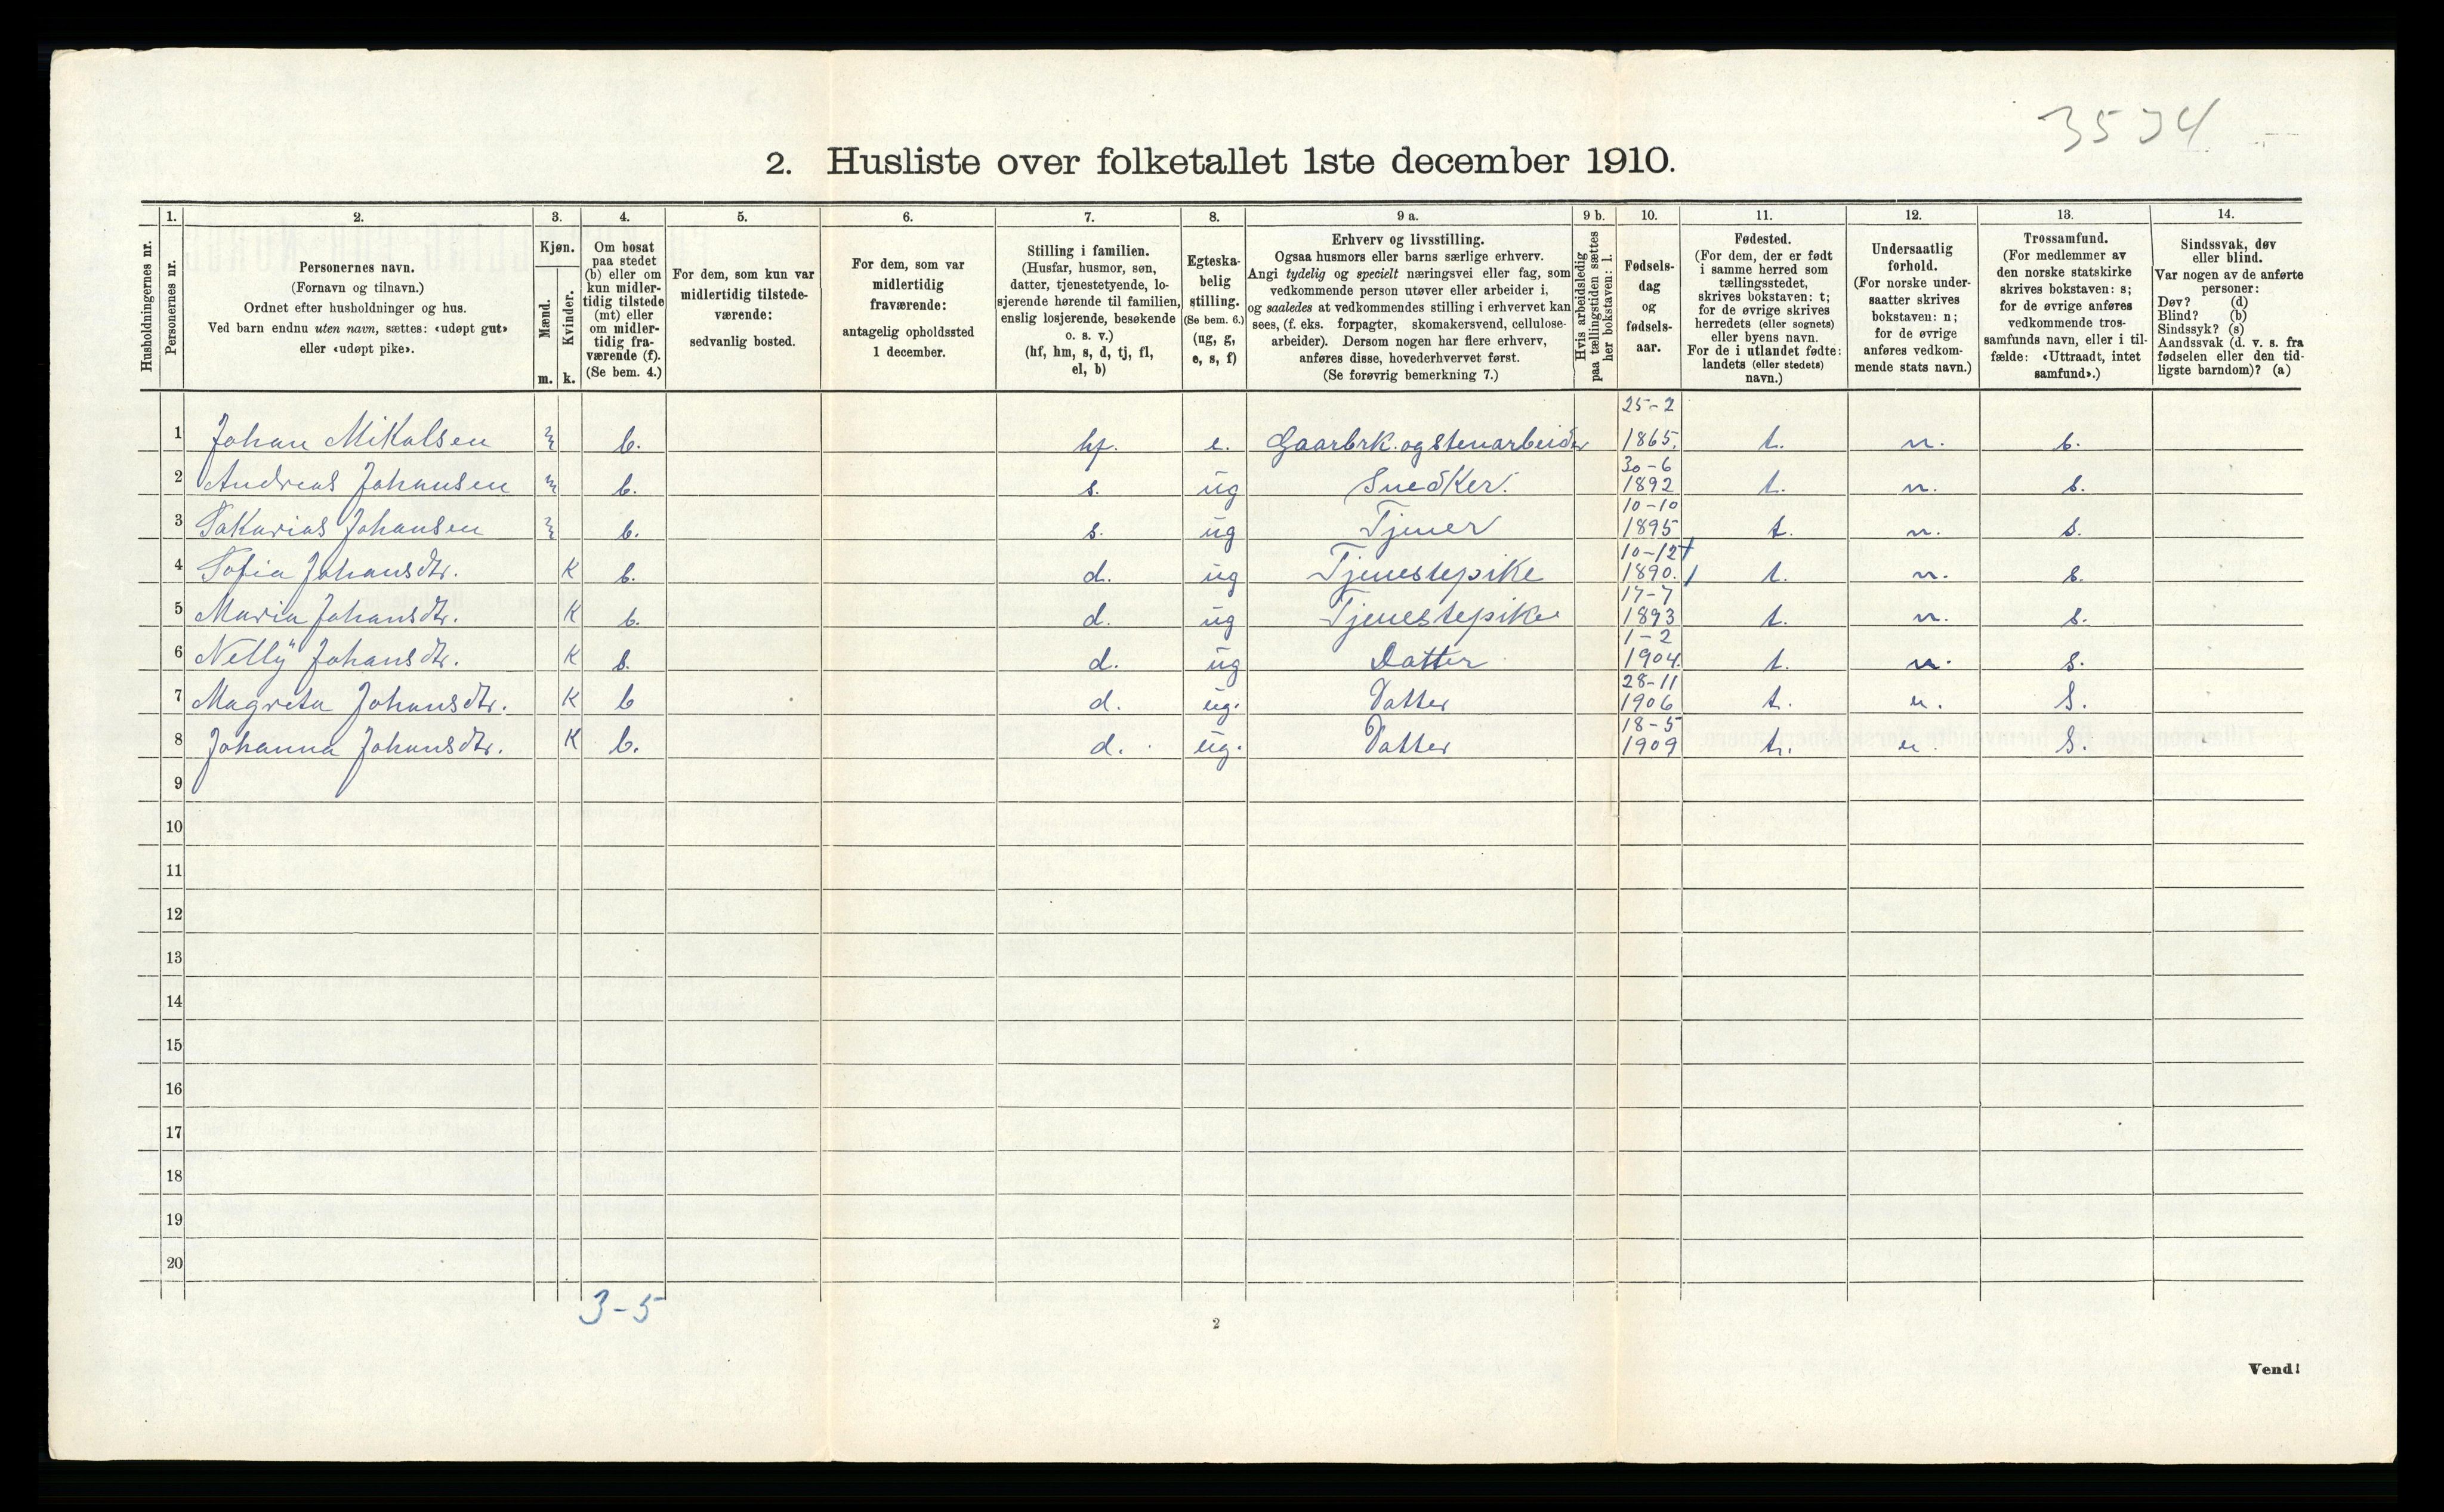 3534
2. Husliste over folketallet 1ste december 1910.
Husholdningernes nr.
1.
Personernes nr.
2.
Personernes navn.
(Fornavn og tilnavn.)
Ordnet efter husholdninger og hus.
Ved barn endnu uten navn, sættes: «udøpt gut»
eller «udøpt pike».
3.
Kjøn.
Mænd.
m.
Kvinder.
k.
4.
Om bosat
paa stedet
(b) eller om
kun midler-
tidig tilstede
(mt) eller
om midler-
tidig fra-
værende (f).
(Se bem. 4.)
5.
For dem, som kun var
midlertidig tilstede-
værende:
sedvanlig bosted.
6.
For dem, som var
midlertidig
fraværende:
antagelig opholdssted
1 december.
7.
Stilling i familien.
(Husfar, husmor, søn,
datter, tjenestetyende, lo-
sjerende hørende til familien,
enslig losjerende, besøkende
o. s. v.)
(hf, hm, s, d, tj, fl,
el, b)
8.
Egteska-
belig
stilling.
(Se bem. 6.)
(ug, g,
e, s, f)
9 a.
Erhverv og livsstilling.
Ogsaa husmors eller barns særlige erhverv.
Angi tydelig og specielt næringsvei eller fag, som
vedkommende person utøver eller arbeider i,
og saaledes at vedkommendes stilling i erhvervet kan
sees, (f. eks. forpagter, skomakersvend, cellulose-
arbeider). Dersom nogen har flere erhverv,
anføres disse, hovederhvervet først.
(Se forøvrig bemerkning 7.)
9 b.
Hvis arbeidsledig
paa tællingstiden sættes
her bokstaven: l.
10.
Fødsels-
dag
og
fødsels-
aar.
11.
Fødested.
(For dem, der er født
i samme herred som
tællingsstedet,
skrives bokstaven: t;
for de øvrige skrives
herredets (eller sognets)
eller byens navn.
For de i utlandet fødte:
landets (eller stedets)
navn.)
12.
Undersaatlig
forhold.
(For norske under-
saatter skrives
bokstaven: n;
for de øvrige
anføres vedkom-
mende stats navn.)
13.
Trossamfund.
(For medlemmer av
den norske statskirke
skrives bokstaven: s;
for de øvrige anføres
vedkommende tros-
samfunds navn, eller i til-
fælde: «Uttraadt, intet
samfund».)
14.
Sindssvak, døv
eller blind.
Var nogen av de anførte
personer:
Døv? (d)
Blind? (b)
Sindssyk? (s)
Aandssvak (d. v. s. fra
fødselen eller den tid-
ligste barndom)? (a)
25-2
1 Johan Mikalsen m b. hf. e. Gaarbrk. og stenarbeider 1865. t. n. s.
30-6
2 Andreas Johansen m b. s. ug Snedker. 1892 t. n. s.
10-10
3 Sakarias Johansen m b. s. ug Tjener 1895 t. n. s.
10-12
4 Sofia Johansdtr. K b. d. ug Tjenestepike 1890. t. n. s.
17-7
5 Maria Johansdtr. K b. d. ug Tjenestepike 1893 t. n. s.
1-2
6 Nelly Johansdtr. K b. d. ug Datter 1904. t. n. s.
28-11
7 Magreta Johansdtr. K b d. ug. Datter 1906 t. n. s.
18-5
8 Johanna Johansdtr. K b. d. ug. Datter 1909 t. n. s.
9
10
11
12
13
14
15
16
17
18
19
20
3-5
2
Vend!